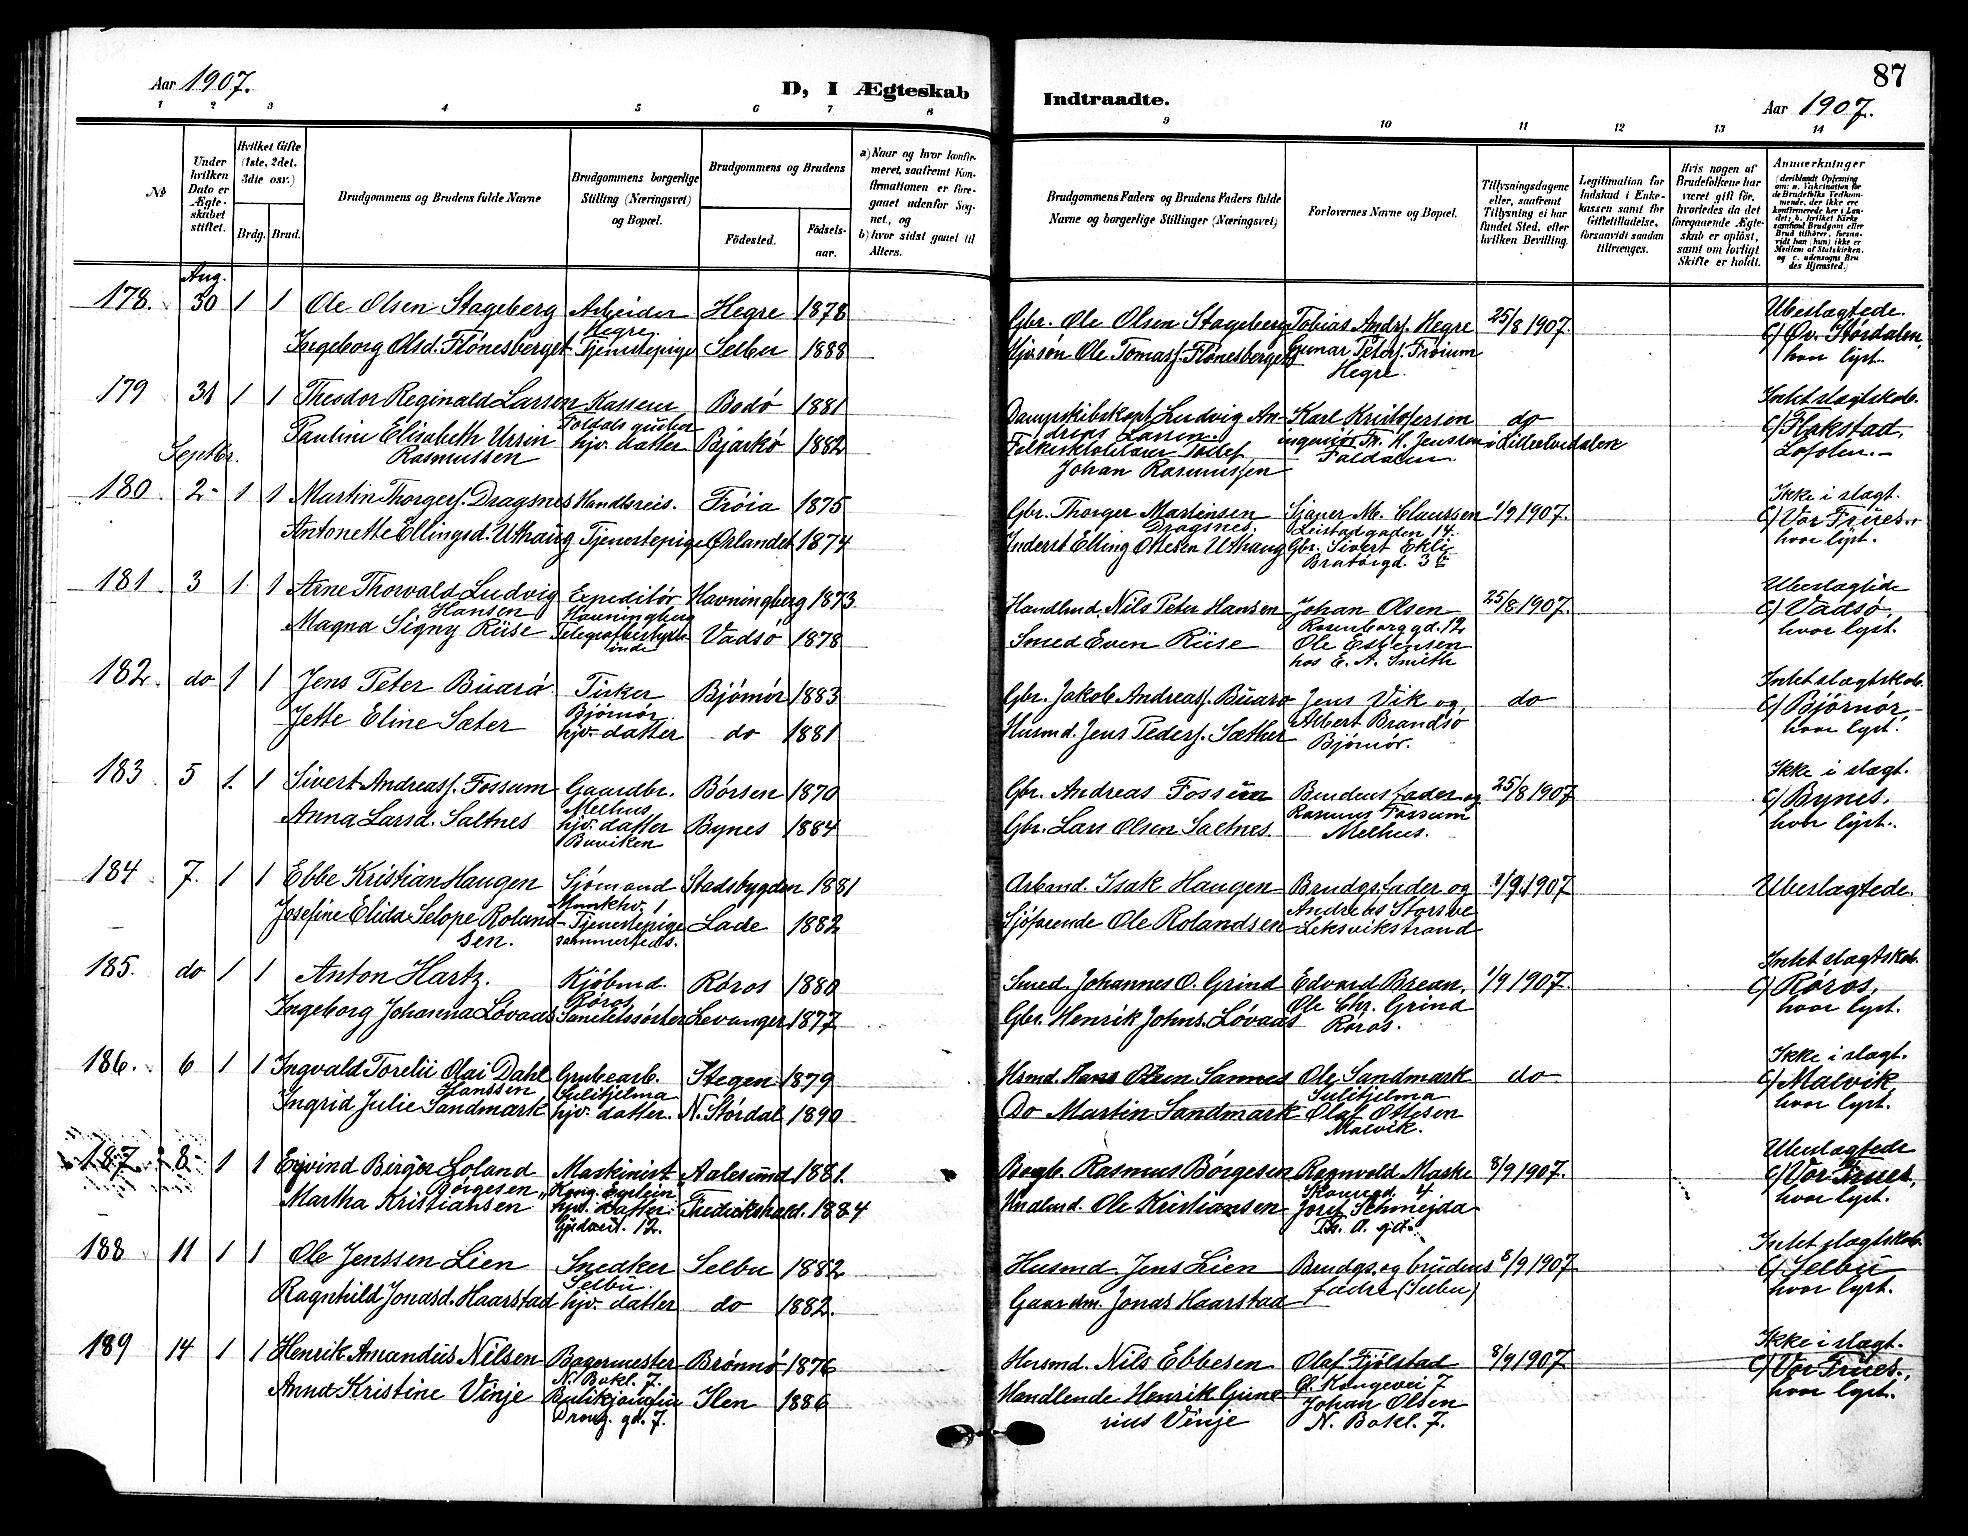 Aar 1907.
D, I Ægteskab
Indtraadte.
87
Aar 1907.
1 2 3 4 5 6 7 8 9 10 11 12 13 14
No
Under hvilken Dato er Ægteskabet stiftet.
Hvilket Gifte (1ste, 2det, 3die osv.)
Brdg. Brud.
Brudgommens og Brudens fulde Navne
Brudgommens borgerlige Stilling (Næringsvei) og Bopæl.
Brudgommens og Brudens
Födested.
Födselsaar.
a) Naar og hvor konfirmeret, saafremt Konfirmationen er foregaaet udenfor Sognet, og
b) hvor sidst gaaet til Alters.
Brudgommens Faders og Brudens Faders fulde Navne og borgerlige Stillinger (Næringsvei)
Forlovernes Navne og Bopæl.
Tillysningsdagene eller, saafremt Tillysning ei har fundet Sted, efter hvilken Bevilling.
Legitimation for Indskud i Enkekassen samt for Giftetilladelse, forsaavidt saadan tiltrænges.
Hvis nogen af Brudefolkene har været gift för, hvorledes da det foregaaende Ægteskab er oplöst, samt om lovligt Skifte er holdt.
Anmærkninger
Aug.
178. 30 1 1 Ole Olsen Stageberg Arbeider Hegre 1878 Gbr. Ole Olsen Stageberg Tobias Andrs. Hegre 25/8 1907. Ubeslægtede.
Hegre.
Ingeborg Olsd. Flønesberget Tjenestepige Selbu 1888 Ole Tomass. Flønesberget Gunar Peters. Frøium c/ Øv. Størdalen,
Hegre. hvor lyst.
179 31 1 1 Theodor Reginald Larsen Kasserer Bodø 1881 Dampskibskapt. Ludvig An- Karl Kristofersen do Intet slægtskab.
Foldals gruber dreas Larsen. c/ Flakstad,
Pauline Elisabeth Ursin hjv. datter Bjarkø 1882 ingeniør Th. H. Jenssen i Lillelerdalen Lofoten.
Rasmussen Johan Rasmussen Foldalen
Septbr.
180 2 1 1 Martin Thorgers. Dragsnes Handlsreis. Frøia 1875 Gbr. Thorger Martinsen M. Claussen 1/9 1907. Ikke i slægt.
Dragsnes. Leistadgaden 14. c/ Vor Frues,
Antonette Ellingsd. Uthaug Tjenestepige Ørlandet 1874 Inderst Elling Ottesen Uthaug Gbr. Sivert Ekli hvor lyst.
Bratørgd. 3
181. 3 1 1 Arne Thorvald Ludvig Expeditør Havningberg 1873 Handlmd. Nils Peter Hansen Johan Olsen 25/8 1907. Ubeslægtede
Hansen Havningberg Rosenborggd. 12 c/ Vadsø,
Magna Signy Riise Telegrafbestyrer- Vadsø 1878 Smed Even Riise Ole Esbensen hvor lyst.
inde hos E. A. Smith
182. do 1 1 Jens Peter Buarø Fisker Bjørnør 1883 Gbr. Jakob Andreass. Buarø Jens Vik og do Intet slægtskab.
Bjørnør. Albert Brandsø c/ Bjørnør
Jette Eline Sæter hjv. datter do 1881 Husmd. Jens Peders. Sæther Bjørnør. hvor lyst.
183 5 1. 1 Sivert Andreass. Fossum Gaardbr. Børsen 1870 Gbr. Andreas Fossum Brudens fader og 25/8 1907 Ikke i slægt.
Melhus Rasmus Fossum c/ Bynes.
Anna Larsd. Saltnes hjv. datter Bynes 1884 Gbr. Lars Olsen Saltnes Melhus. hvor lyst.
Buviken
184 7. 1 1 Ebbe Kristian Haugen Sjømand Stadsbygden 1881 Arbmd. Isak Haugen Brudgs. fader og 1/9 1907 Ubeslægtede.
Munkhv. 1 Andreas Storsve
Josefine Elida Selope Roland- Tjenestepige Lade 1882 Sjøfarende Ole Rolandsen Leksvikstrand
sen. sammesteds.
185. do 1 1 Anton Hartz. Kjøbmd. Røros 1880 Smed. Johannes O. Grind Edvard Brean, 1/9 1907. Intet slægtskab.
Røros Ole Chr. Grind c/ Røros,
Ingeborg Johanna Løvaas Sanitetssøster Levanger 1877 Gbr. Henrik Johns. Løvaas Røros. hvor lyst.
186. 6 1 1 Ingvald Torelii Olai Dahl Grubearb. Stegen 1879 Hsmd. Hans Olsen Sannes Ole Sandmark do Ikke i slægt.
Hanssen Sulitjelma Sulitjelma c/ Malvik,
Ingrid Julie Sandmark hjv. datter. N. Størdal 1890 Do Martin Sandmark Olaf Ottesen hvor lyst.
Malvik.
187 8 1 1 Eyvind Birger Loland Maskinist Aalesund 1881. Rasmus Børgesen Ragnvald Maske 8/9 1907. Ubeslægtede
Børgesen "Kong Eystein" 4 c/ Vor Frues,
Martha Kristiansen hjv. datter Fredrikshald. 1884 Hndlmd. Ole Kristiansen Josef Schmejda hvor lyst.
12. Th. A. gd.
188 11 1 1 Ole Jenssen Lien Snedker Selbu 1882 Husmd. Jens Lien Brudgs. og brudens 8/9 1907 Intet slægtskab.
Selbu fædre (Selbu) c/ Selbu
Ragnhild Jonasd. Haarstad hjv. datter do 1882. Gaardm. Jonas Haarstad hvor lyst.
189 14 1 1 Henrik Amandus Nilsen Bagermester Brønnø 1876 Husmd. Nils Ebbesen Olaf Fjølstad 8/9 1907 Ikke i slægt.
N. Bakl. 7. Gl. Kongevei 7 c/ Vor Frues,
Anna Kristine Vinje Ilen 1886 Handlende Henrik Gune- Johan Olsen hvor lyst.
Dronng. gd. 7. rius Vinje N. Bakl. 7.